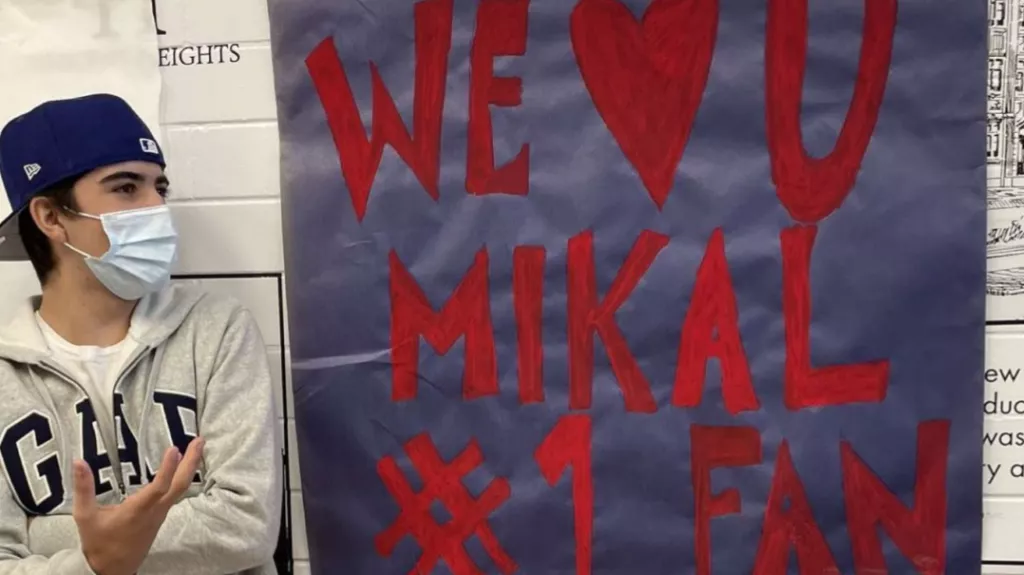 EIGHTS
WE ♥ U
MIKAL
#1 FAN
GAP
ew
duc
was
ry a